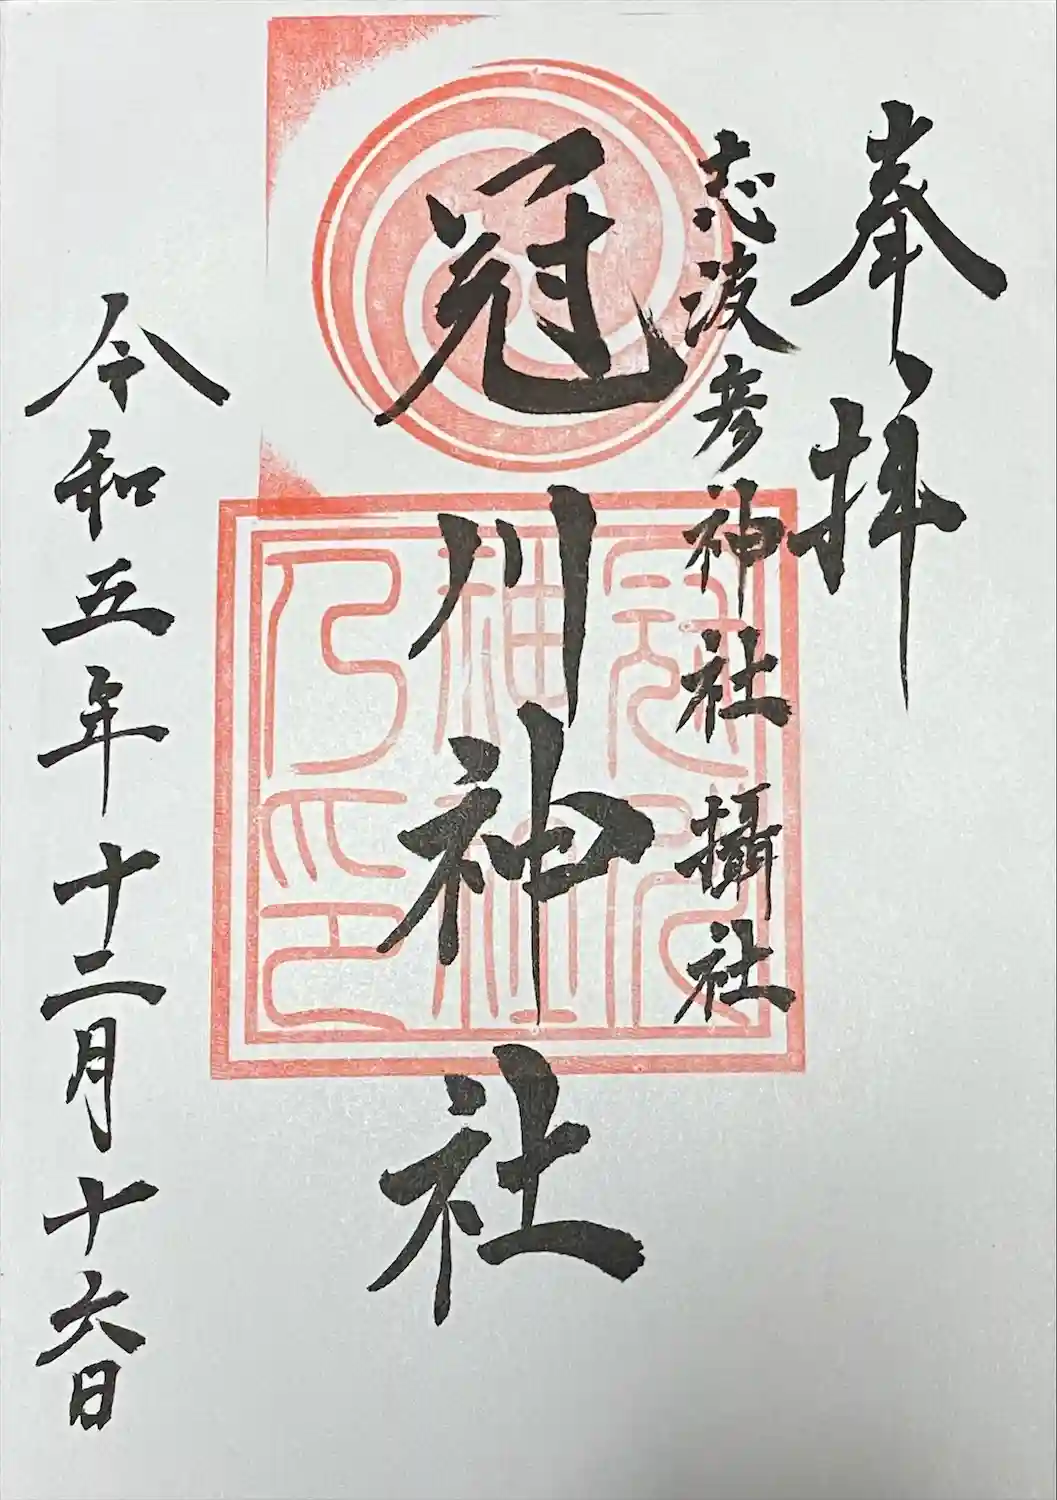 奉拝
志波彦神社 攝社
冠川神社
冠川神社乃印
令和五年十二月十六日